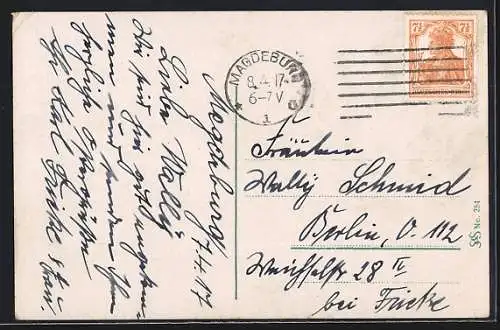 Magdeburg 7.4.17
Liebe Wally
Wir sind hier gut angekom-
men und senden Ihnen
herzliche Ostergrüße
Ihr Karl Fricke u.
Frau.
MAGDEBURG
8.4.17.
6-7 V
* 1 c
7½ 7½
Fräulein
Wally Schmid
Berlin, O. 112
Weichselstr 28 II
bei Fricke
No. 254